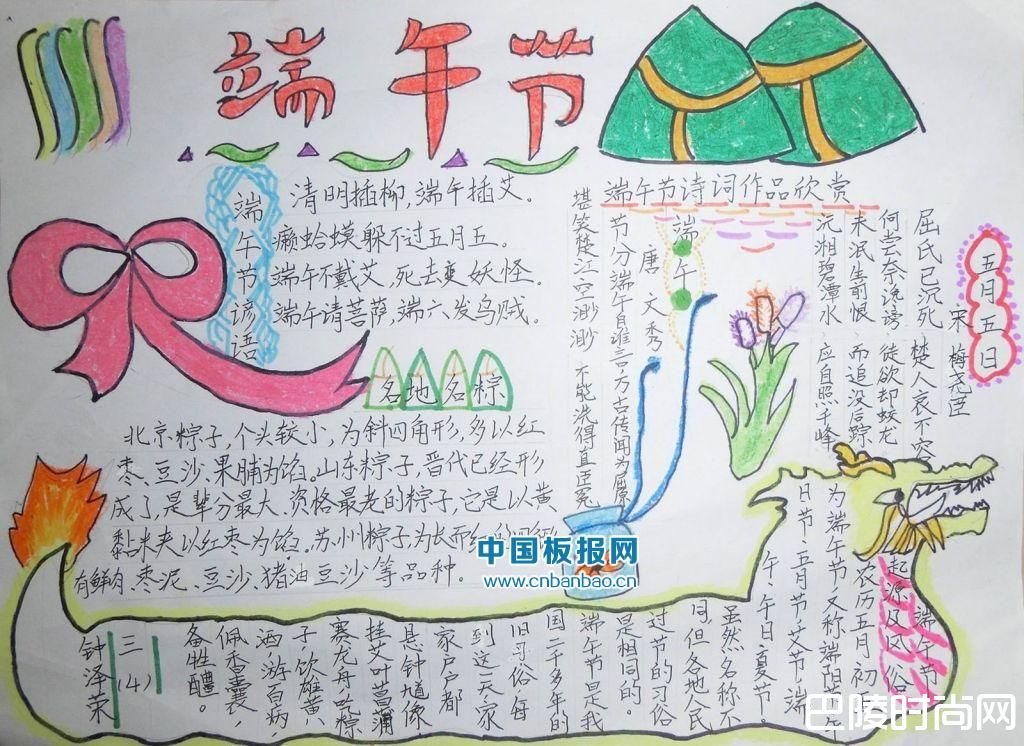 端午节
端午节谚语
清明插柳,端午插艾。
癞蛤蟆躲不过五月五。
端午不戴艾,死去变妖怪。
端午请菩萨,端六发乌贼。
各地名粽
北京粽子,个头较小,为斜四角形,多以红
枣、豆沙、果脯为馅。山东粽子,晋代已经形
成了,是辈分最大、资格最老的粽子,它是以黄
黏米夹以红枣为馅。苏州粽子为长而
有鲜肉、枣泥、豆沙、猪油豆沙等品种。
端午节诗词作品欣赏
五月五日
宋 梅尧臣
屈氏已沉死 楚人哀不容
何尝奈谗谤 徒欲却蛟龙
未泯生前恨 而追没后踪
沅湘碧潭水 应自照千峰
端午
唐 文秀
节分端午自谁言 万古传闻为屈原
堪笑楚江空渺渺 不能洗得直臣冤
端午节
起源及风俗
农历五月初
为端午节,又称端阳节午
日节、五月节、艾节、端
午、午日、夏节。
虽然名称不
同,但各地人民
过节的习俗
是相同的。
端午节是我
国二千多年的
旧习俗,每
到这一天,家
家户户都
悬钟馗像,
挂艾叶菖蒲
赛龙舟,吃粽
子,饮雄黄
酒,游百病,
佩香囊,
备牲醴。
三(4)
钟泽荣
中国板报网
www.cnbanbao.cn
巴陵时尚网